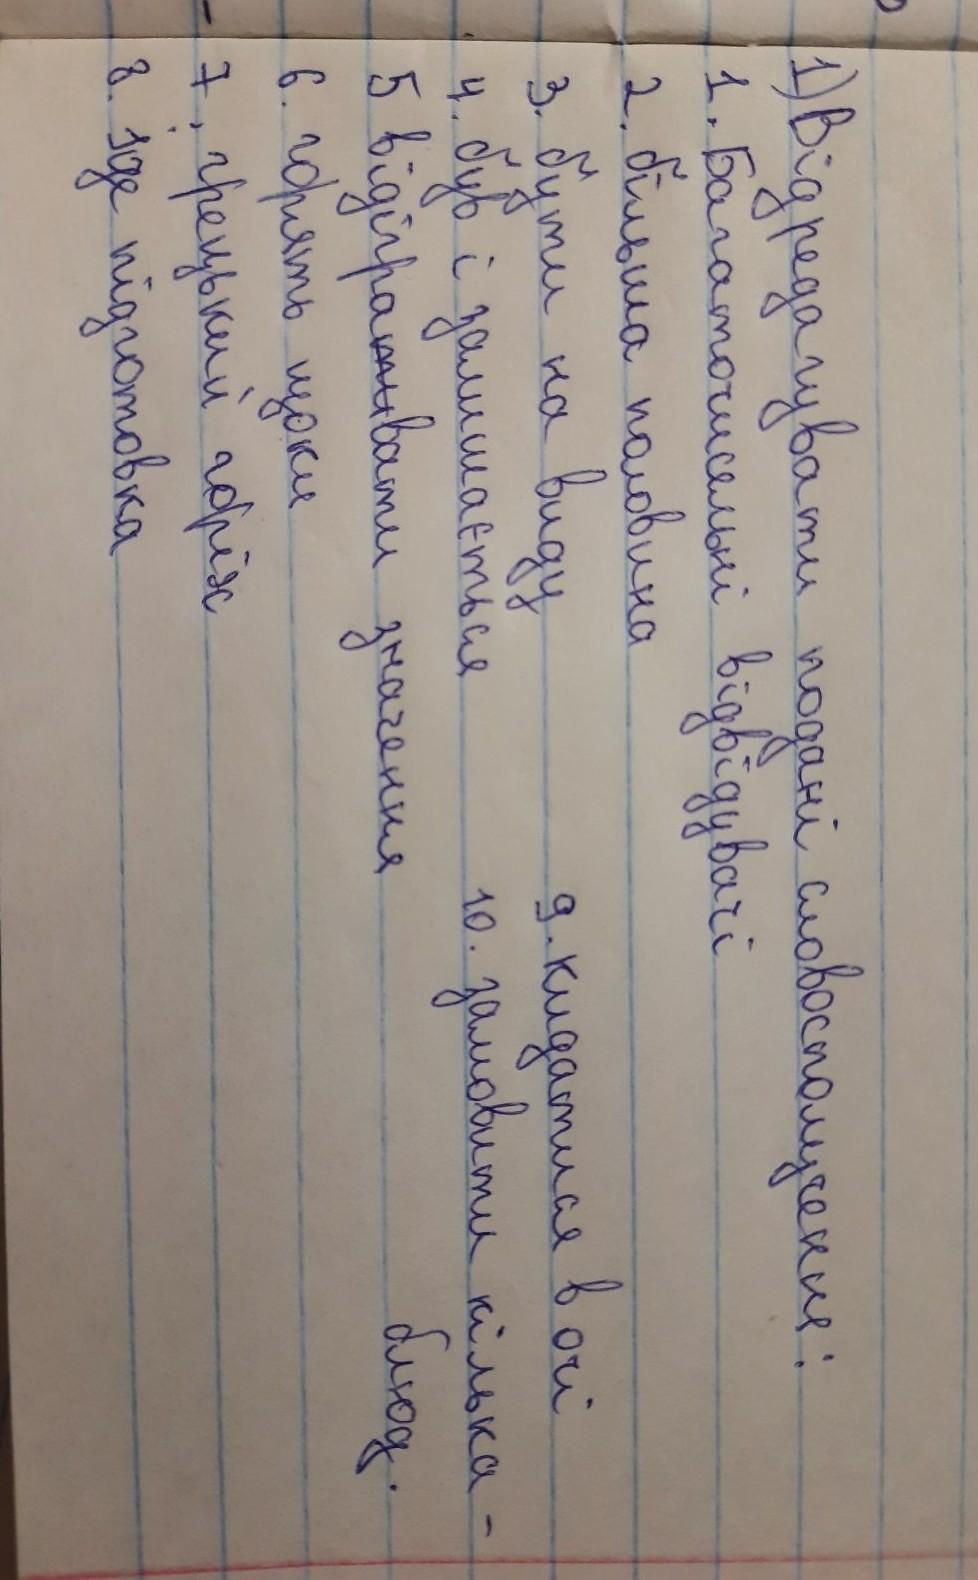 1) Відредагувати подані словосполучення:
1. Багаточисельні відвідувачі
2. більша половина
3. бути на виду
4. був і залишається
5 відігравати значення
6. горять щоки
7. грецький горіх
8. іде підготовка
9. кидатися в очі
10. замовити кілька-
блюд.